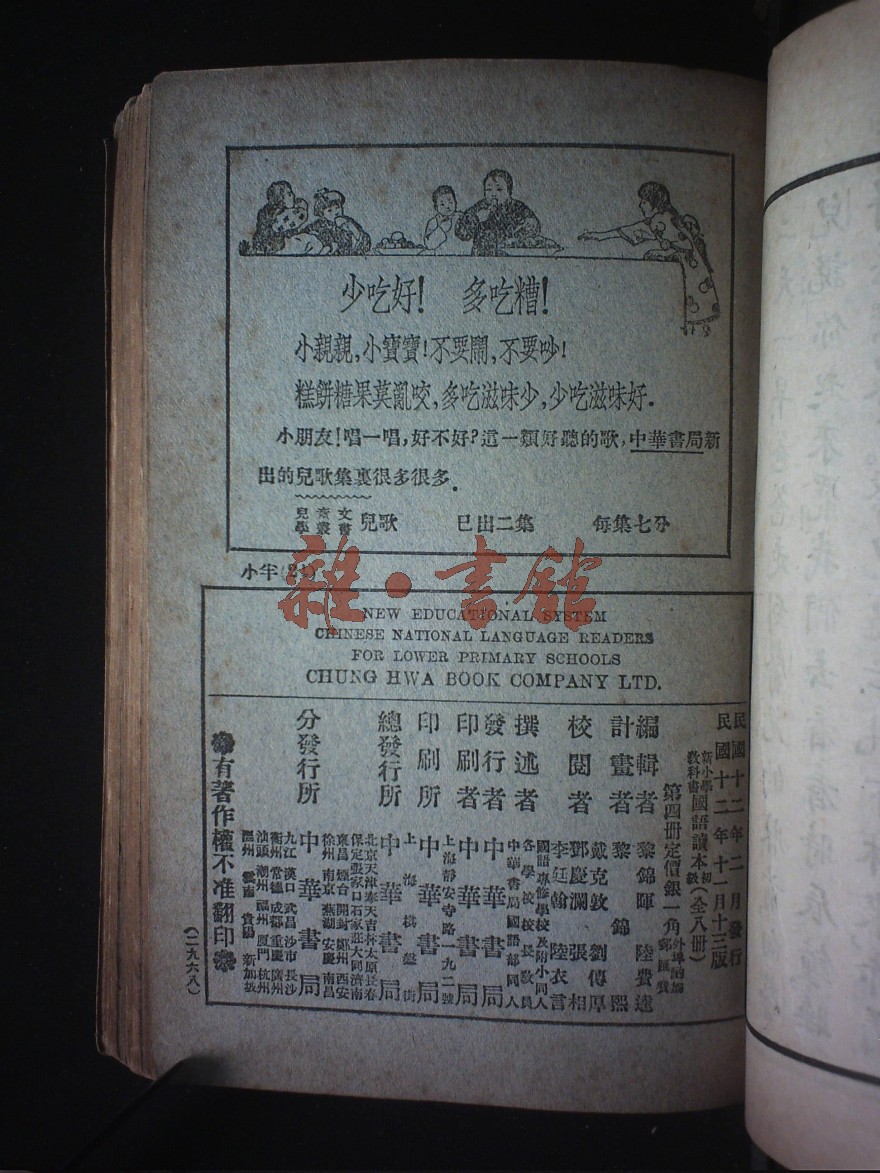 少吃好！ 多吃糟！
小親親，小寶寶！不要鬧，不要吵！
糕餅糖果莫亂咬，多吃滋味少，少吃滋味好．
小朋友！唱一唱，好不好？這一類好聽的歌，中華書局新
出的兒歌集裏很多很多．
兒童文學叢書 兒歌 已出二集 每集七分
雜·書館
NEW EDUCATIONAL SYSTEM
CHINESE NATIONAL LANGUAGE READERS
FOR LOWER PRIMARY SCHOOLS
CHUNG HWA BOOK COMPANY LTD.
民國十二年二月發行
民國十二年十一月十三版
新小學教科書 國語讀本 初級 (全八冊)
第四冊定價銀一角
編輯者 黎錦暉 陸費逵
計畫者 黎錦熙
校閱者 戴克敦 劉傳厚
鄧慶瀾 張相
李廷翰 陸衣言
撰述者 國語專修學校及附小同人
各學校校長教員
中華書局國語部同人
發行者 中華書局
印刷者 中華書局
上海靜安寺路一九二號
印刷所 中華書局
上海棋盤街
總發行所 中華書局
北京 天津 奉天 吉林 太原 長春
保定 張家口 石家莊 大同 濟南
東昌 煙台 開封 鄭州 西安
徐州 南京 蕪湖 安慶 南昌
分發行所 中華書局
九江 漢口 武昌 沙市 長沙
衡州 常德 成都 重慶 廣州
汕頭 潮州 福州 廈門 杭州
溫州 雲南 貴陽 新加坡
有著作權不准翻印
(二九六八)